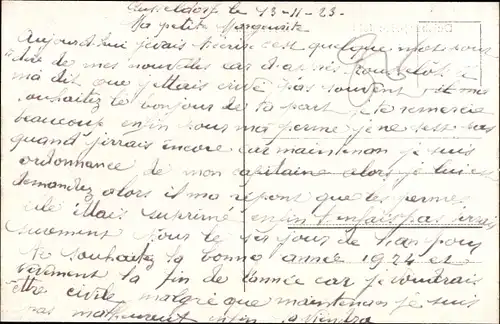 Dusseldorf le 13-11-23.
Ma petite Marguerite
Aujourd'hui je vais t'écrire c'est quelque mots pour
de mes nouvelles car
ma dit que j'étais pas souvent et ma
souhaitez le bonjour de ta part je te remercie
beaucoup enfin pour ma perme je ne sest pas
quand j'irrais encore car maintenan je suis
ordonnance de mon capitaine alors je lui est
demandez alors il ma répont que les perme
étais suprimé enfin t'enfais pas j'irais
surement pour le jour de l'an pour
te souhaitez la bonne année 1924 et
vivement la fin de l'année car je voudrais
être civile malgré que maintenan je suis
pas malheureut enfin a viendra